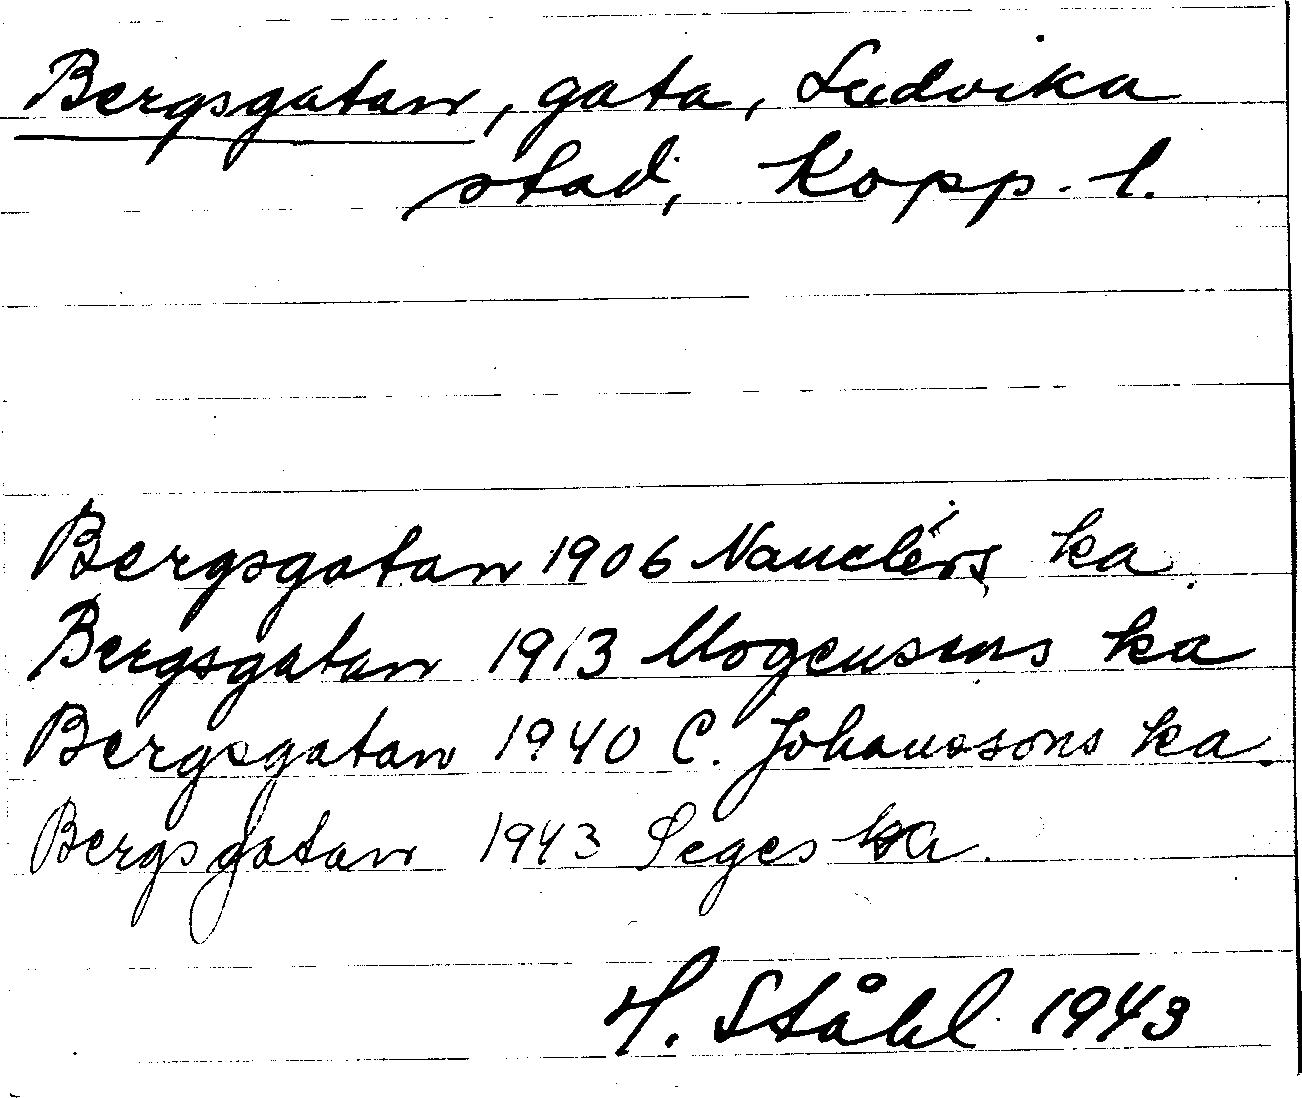 Bergsgatan, gata, Ludvika
stad, Kopp. l.
Bergsgatan 1906 Nauclérs ka.
Bergsgatan 1913 Mogensens ka
Bergsgatan 1940 C. Johanssons ka.
Bergsgatan 1943 Seges ka.
H. Ståhl 1943